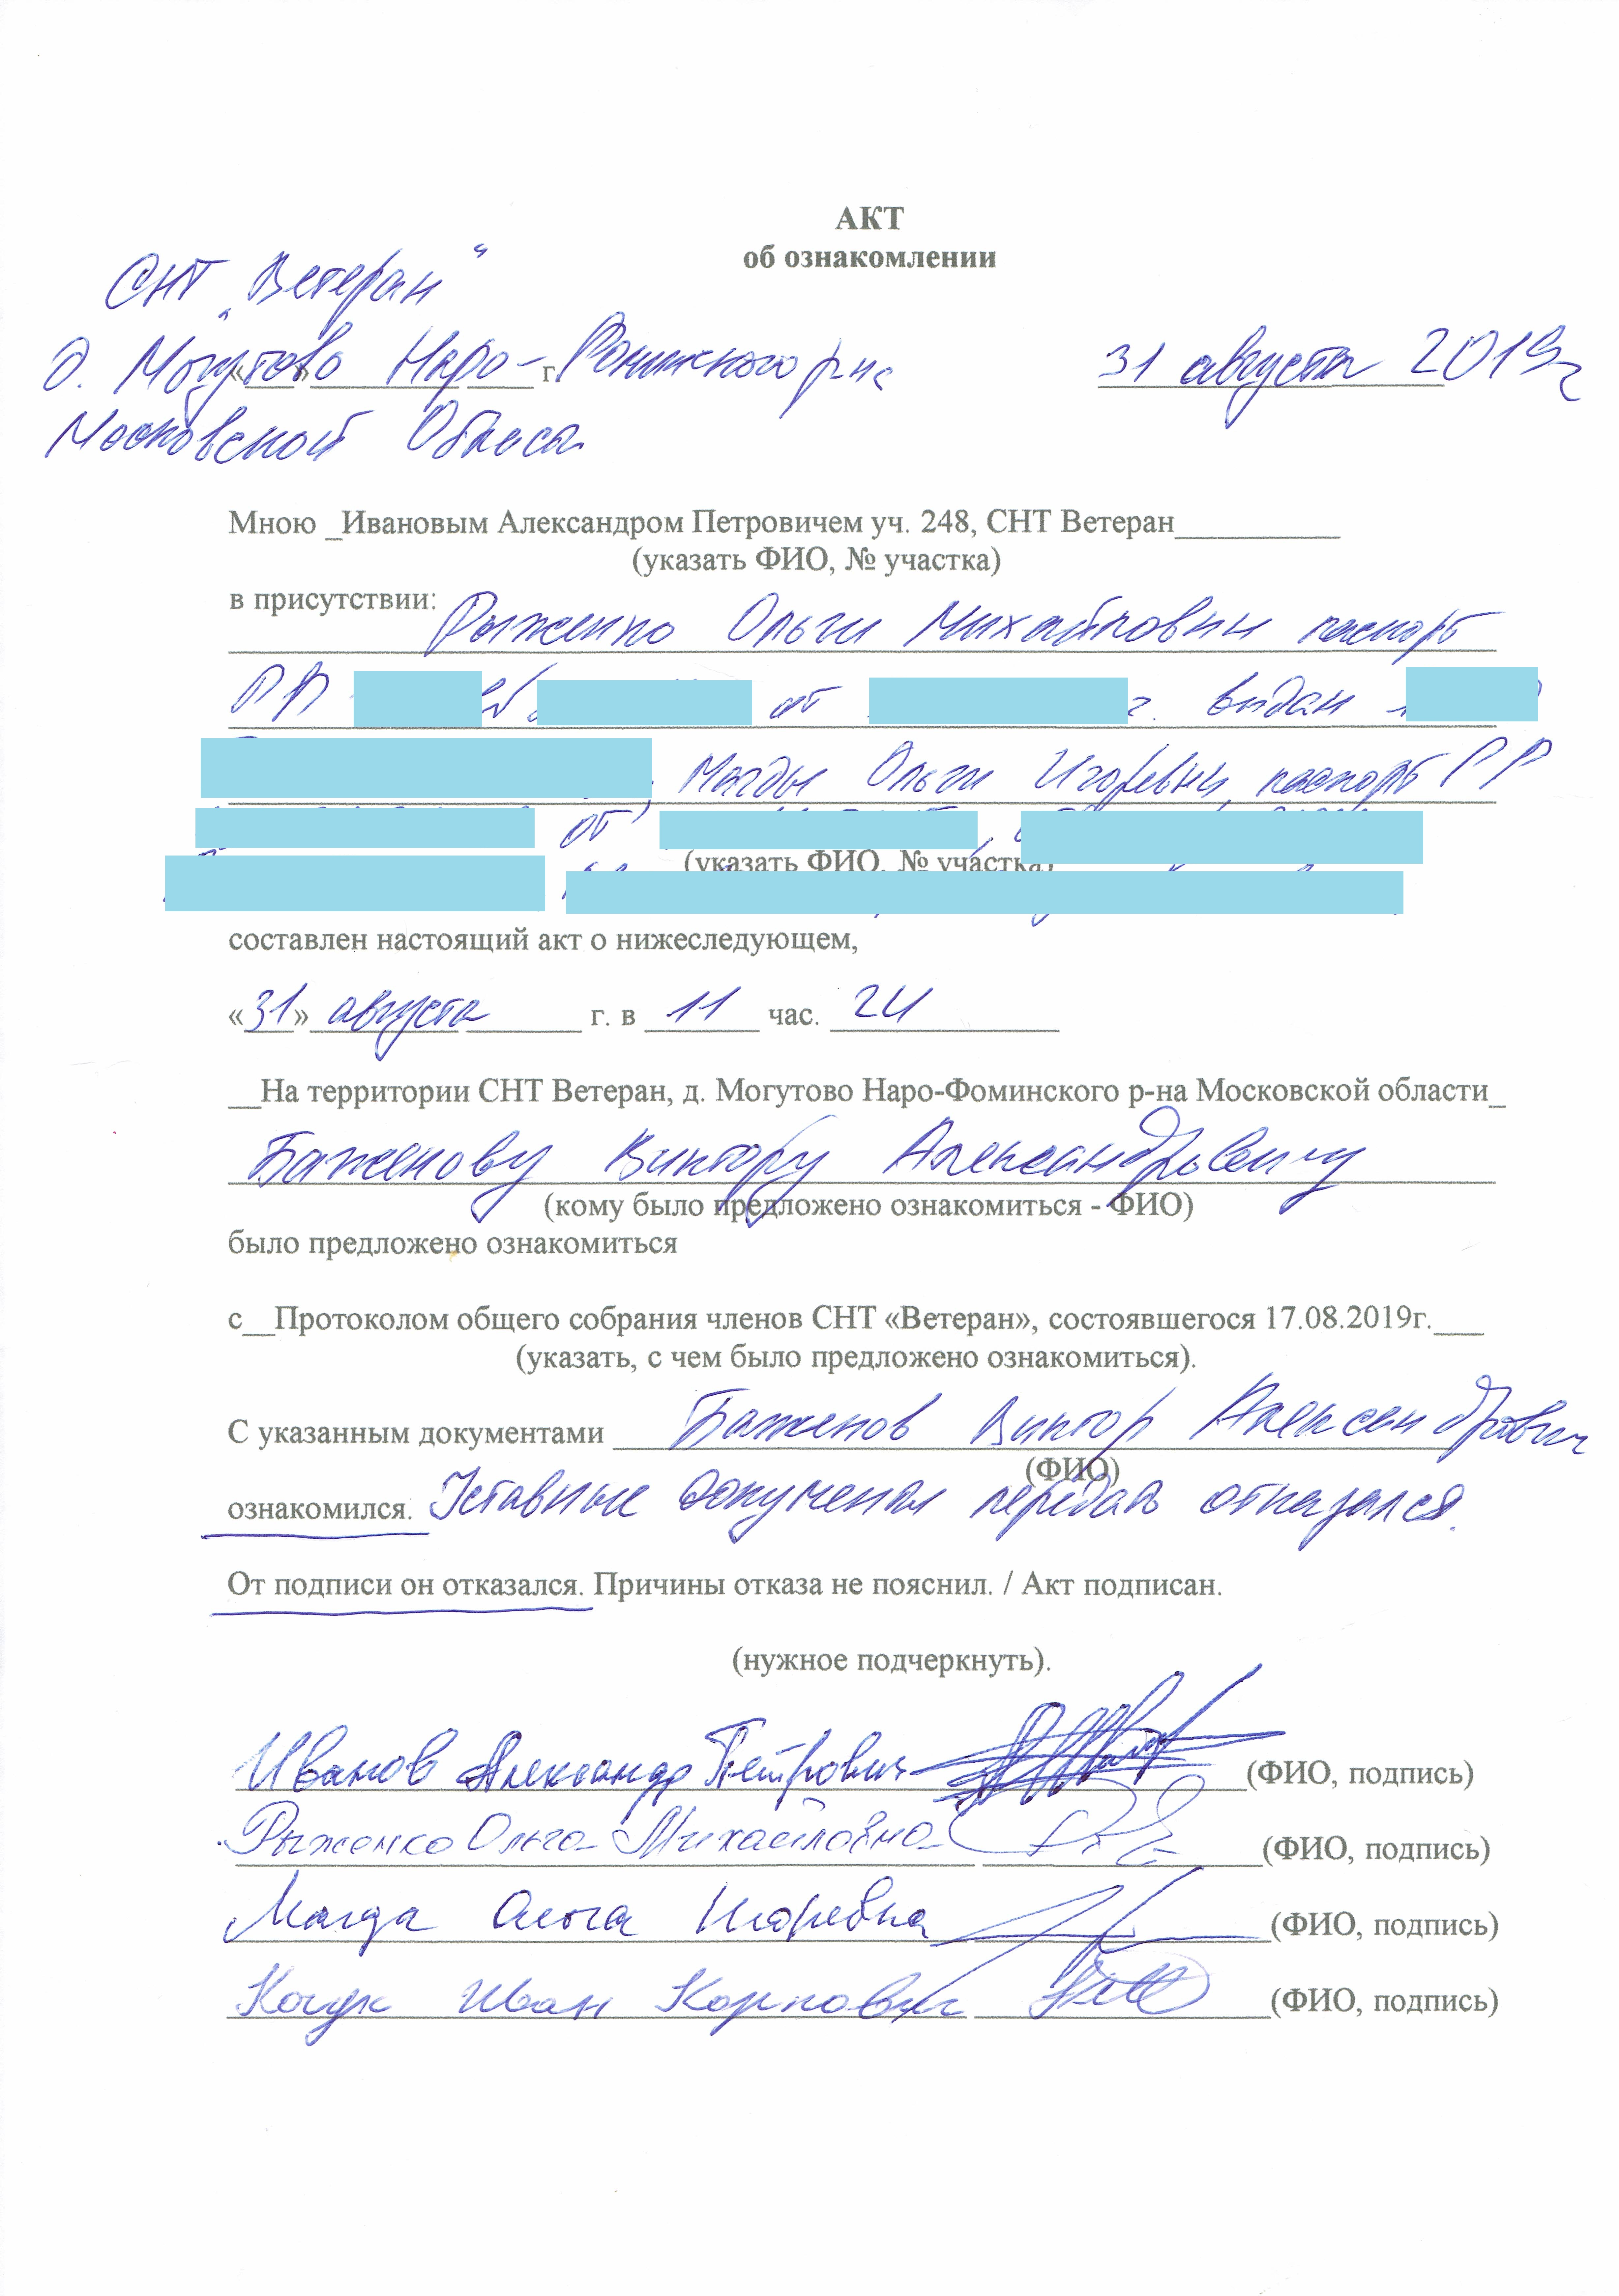 АКТ
об ознакомлении
СНТ „Ветеран“
д. Могутово Наро-Фоминского р-на
31 августа 2019г
Московской Области
Мною _Ивановым Александром Петровичем уч. 248, СНТ Ветеран__________
(указать ФИО, № участка)
в присутствии:
Рыженко Ольги Михайловны паспорт
РФ от г. выдан
Магды Ольги Игоревны, паспорт РФ
от
(указать ФИО, № участка)
составлен настоящий акт о нижеследующем,
«31» августа г. в 11 час. 24
__На территории СНТ Ветеран, д. Могутово Наро-Фоминского р-на Московской области_
Баженову Виктору Александровичу
(кому было предложено ознакомиться - ФИО)
было предложено ознакомиться
с__Протоколом общего собрания членов СНТ «Ветеран», состоявшегося 17.08.2019г.___
(указать, с чем было предложено ознакомиться).
С указанным документами Баженов Виктор Александрович
(ФИО)
ознакомился. Уставные документы передать отказался.
От подписи он отказался. Причины отказа не пояснил. / Акт подписан.
(нужное подчеркнуть).
Иванов Александр Петрович (ФИО, подпись)
Рыженко Ольга Михайловна (ФИО, подпись)
Магда Ольга Игоревна (ФИО, подпись)
Иван Карпович (ФИО, подпись)